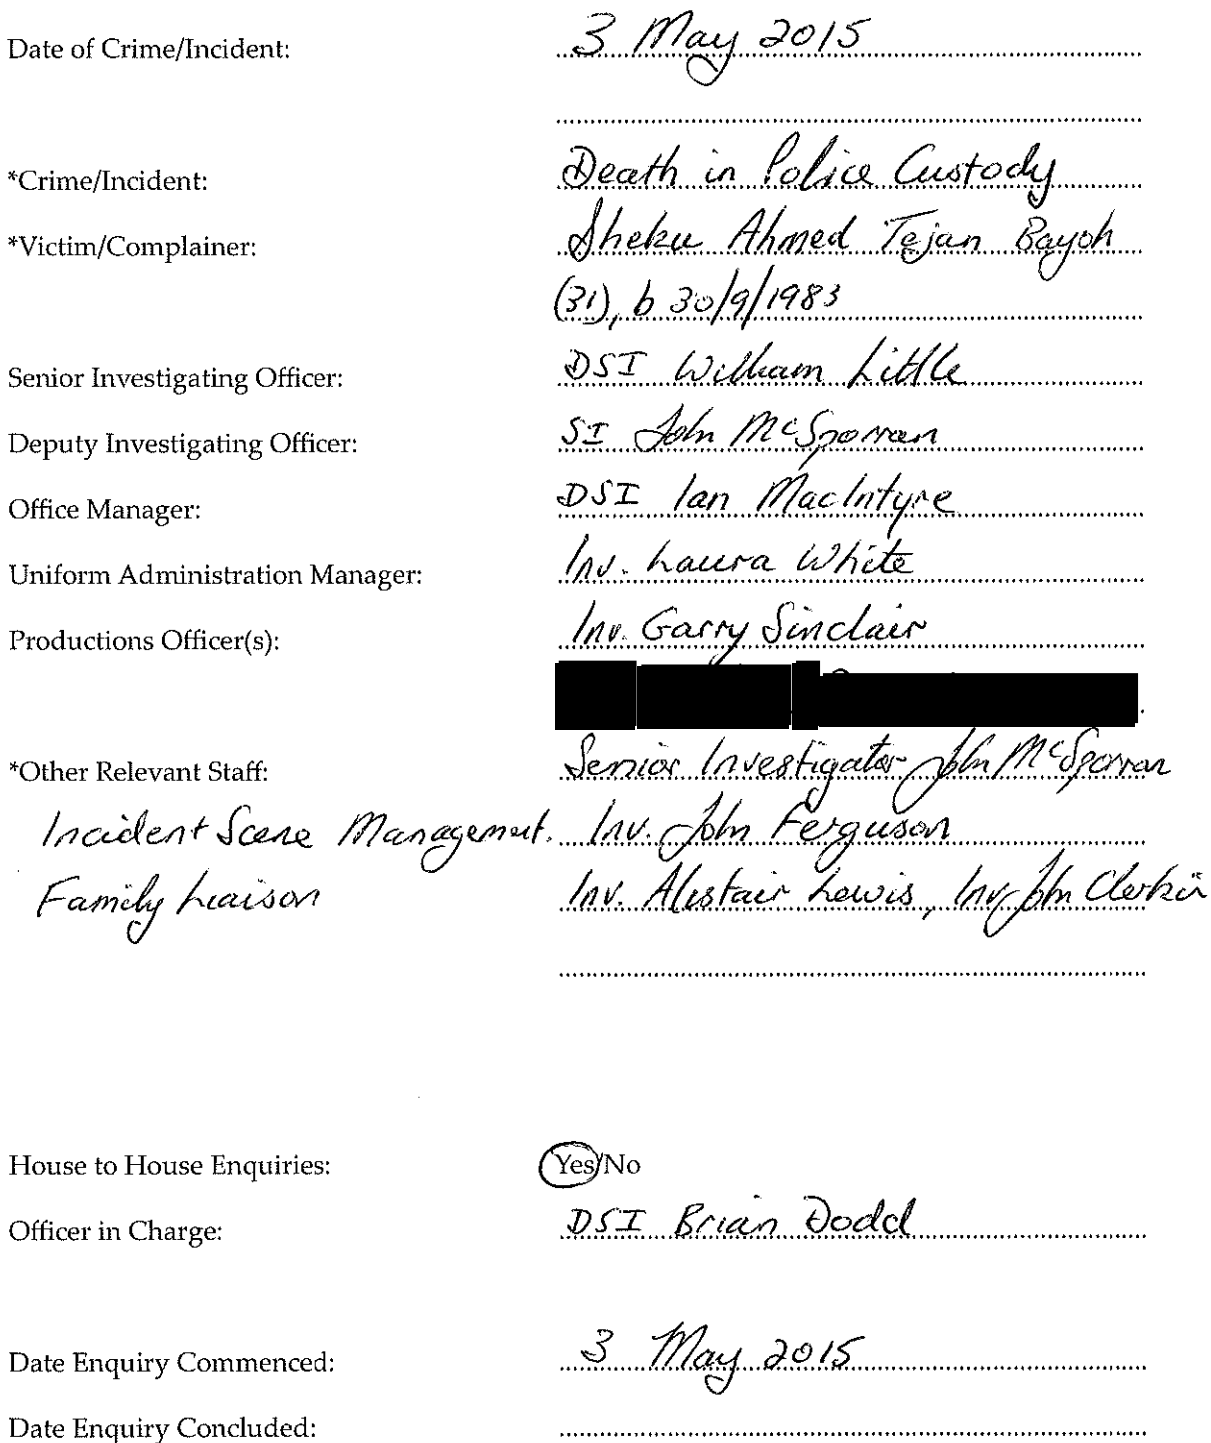 Date of Crime/Incident: 3 May 2015
*Crime/Incident: Death in Police Custody
*Victim/Complainer: Sheku Ahmed Tejan Bayoh
(31), b 30/9/1983
Senior Investigating Officer: DSI William Little
Deputy Investigating Officer: SI John McSporran
Office Manager: DSI Ian MacIntyre
Uniform Administration Manager: Inv. Laura White
Productions Officer(s): Inv. Garry Sinclair
*Other Relevant Staff: Senior Investigator John McSporran
Incident Scene Management. Inv. John Ferguson
Family Liaison Inv. Alistair Lewis, Inv John Clerkin
House to House Enquiries: Yes/No
Officer in Charge: DSI Brian Dodd
Date Enquiry Commenced: 3 May 2015
Date Enquiry Concluded: